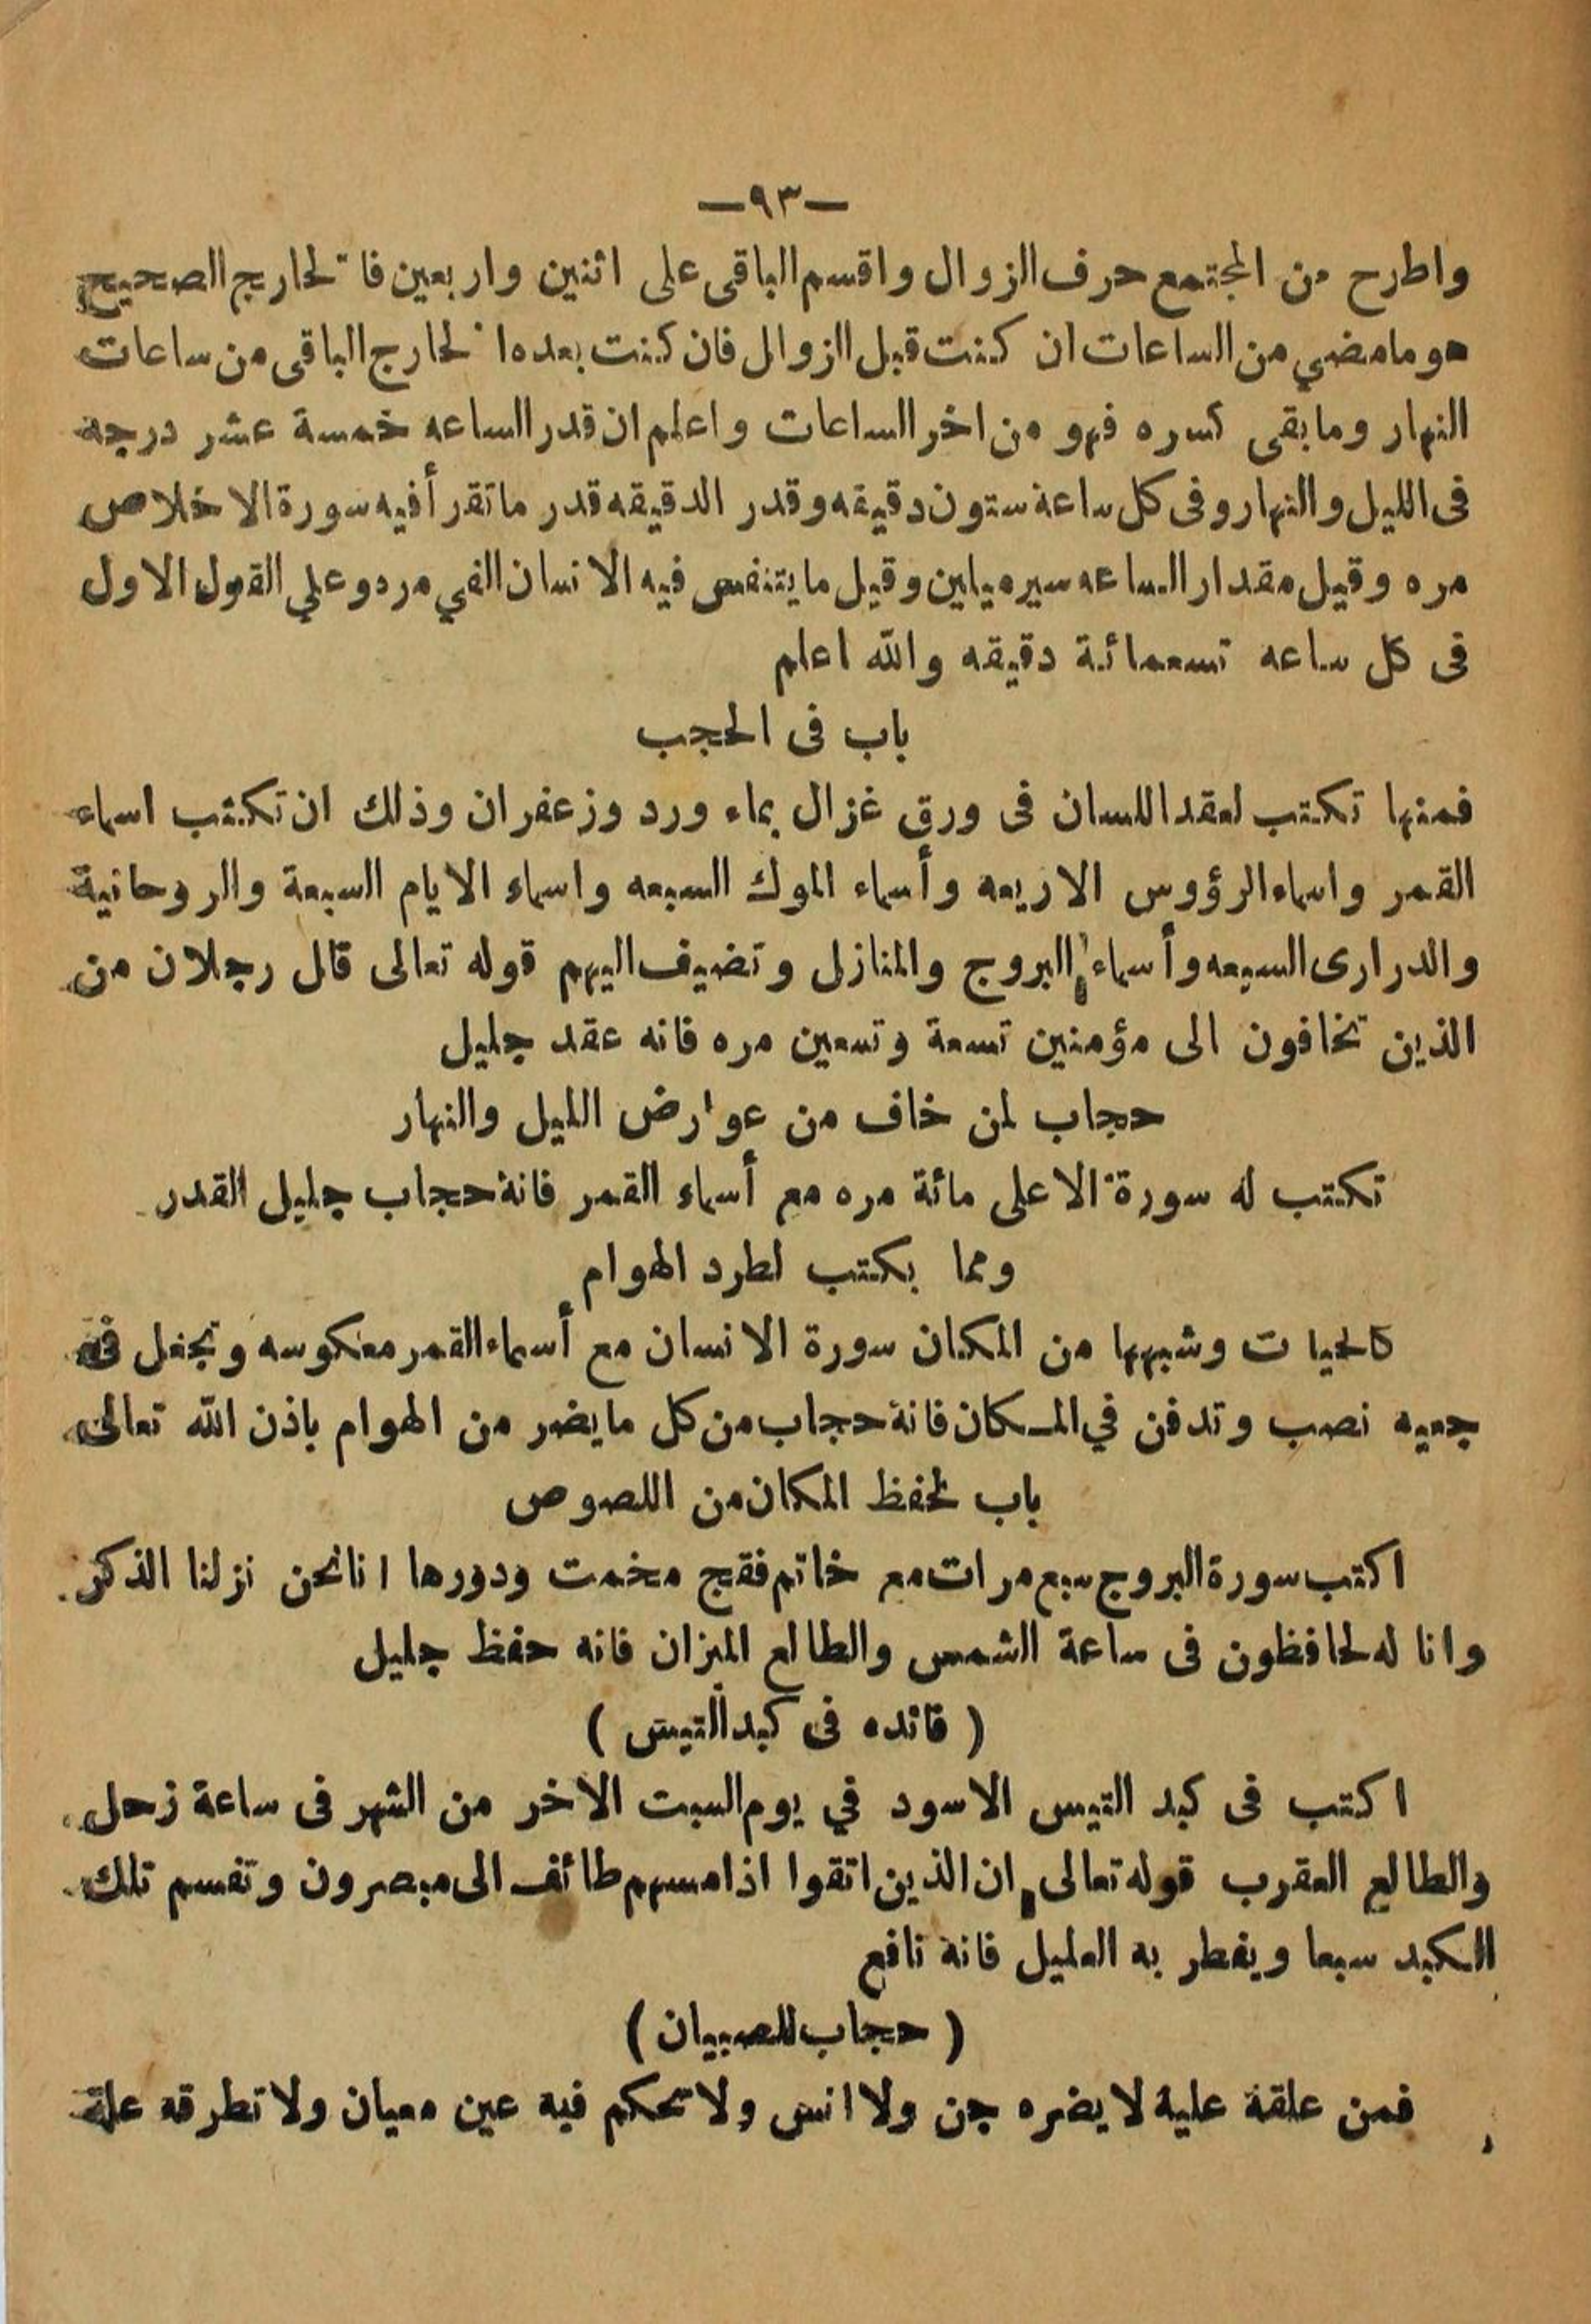 —٩٣—
واطرح من المجتمع حرف الزوال واقسم الباقى على اثنين واربعين فا لخارج الصحيح
هو ما مضي من الساعات ان كنت قبل الزوال فان كنت بعده ا لخارج الباقى من ساعات
النهار وما بقى كسره فهو من اخر الساعات واعلم ان قدر الساعه خمسة عشر درجه
فى الليل والنهار وفى كل ساعة ستون دقيقه وقدر الدقيقه قدر ما تقرأ فيه سورة الاخلاص
مره وقيل مقدار الساعه سير ميلين وقيل ما يتنفس فيه الانسان الفي مره وعلي القول الاول
فى كل ساعه تسعمائة دقيقه والله اعلم
باب فى الحجب
فمنها تكتب لعقد اللسان فى ورق غزال بماء ورد وزعفران وذلك ان تكتب اسماء
القمر واسماء الرؤوس الاربعه وأسماء الموك السبعه واسماء الايام السبعة والروحانية
والدرارى السبعه وأسماء البروج والمنازل وتضيف اليهم قوله تعالى قال رجلان من
الذين تخافون الى مؤمنين تسعة وتسعين مره فانه عقد جليل
حجاب لمن خاف من عوارض الليل والنهار
تكتب له سورة الاعلى مائة مره مع أسماء القمر فانة حجاب جليل القدر
ومما بكتب لطرد الهوام
كالحيات وشبهها من المكان سورة الانسان مع أسماء القمر معكوسه وتجعل فى
جعبه نصب وتدفن في المكان فانة حجاب من كل ما يضر من الهوام باذن الله تعالى
باب لحفظ المكان من اللصوص
اكتب سورة البروج سبع مرات مع خاتم فقج مخمت ودورها انا نحن نزلنا الذكر
وانا له لحافظون فى ساعة الشمس والطالع الميزان فانه حفظ جليل
( فائده فى كبد التيس )
اكتب فى كبد التيس الاسود في يوم السبت الاخر من الشهر فى ساعة زحل
والطالع العقرب قوله تعالى ان الذين اتقوا اذا مسهم طائف الى مبصرون وتقسم تلك
الكبد سبعا ويفطر به العليل فانة نافع
( حجاب للصبيان )
فمن علقة علية لا يضره جن ولا انس ولا تحكم فيه عين معيان ولا تطرقه علة